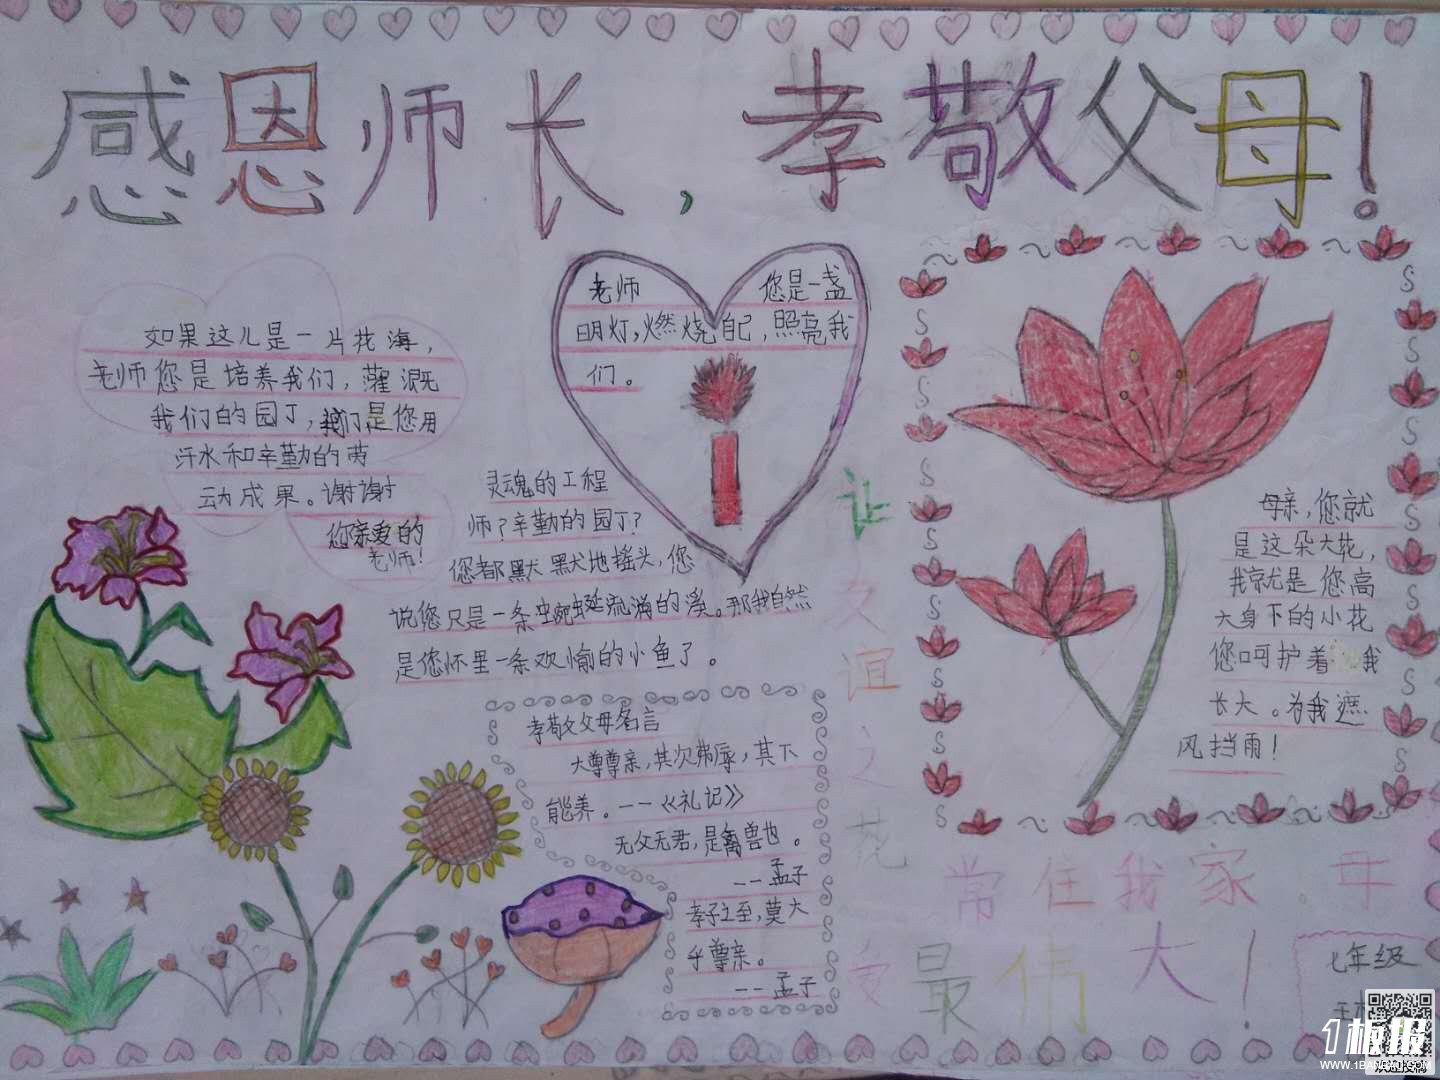 感恩师长，孝敬父母！
如果这儿是一片花海，
老师您是培养我们，灌溉
我们的园丁，我们是您用
汗水和辛勤的劳
动成果。谢谢
您亲爱的
老师！
老师 您是一盏
明灯，燃烧自己，照亮我
们。
灵魂的工程
师？辛勤的园丁？
您都默默地摇头，您
说您只是一条蜿蜒流淌的溪。那我自然
是您怀里一条欢愉的小鱼了。
孝敬父母名言
大尊尊亲，其次弗辱，其下
能养。——《礼记》
无父无君，是禽兽也。
——孟子
孝子之至，莫大
乎尊亲。
——孟子
母亲，您就
是这朵大花，
我就是您高
大身下的小花
您呵护着我
长大。为我遮
风挡雨！
让
友
谊
之
花
常住我家，母
爱最伟大！
七年级
1板报
WWW.1BANBAO.COM
欢迎投稿